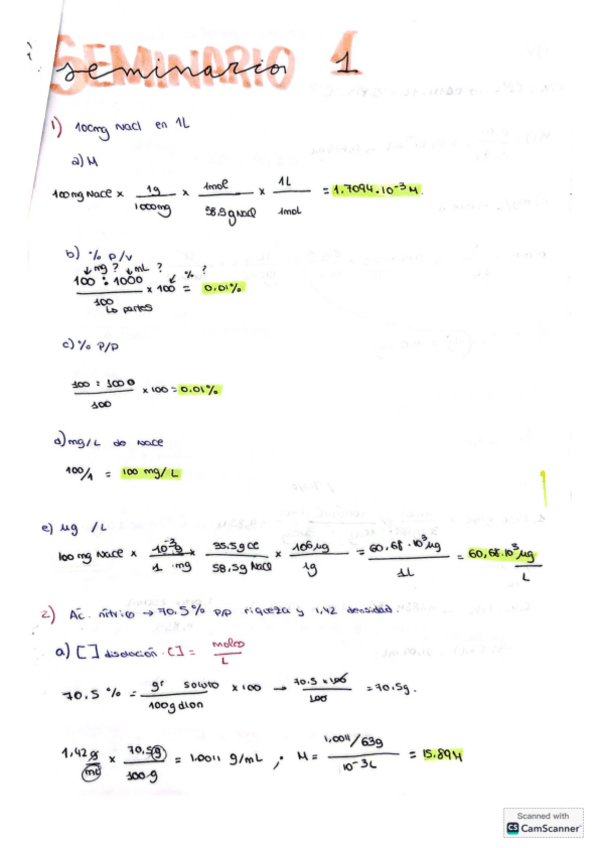 SEMINARIO
seminario 1
1) 100mg NaCl en 1L
a) M
100mg NaCl x 1g/1000mg x 1mol/58.5g NaCl x 1L/1mol = 1.7094·10⁻³ M.
b) % p/v
↓mg ? ↓mL ? ↙ % ?
100 : 1000/100 x 100 = 0.01%
↳ partes
c) % P/P
100 : 1000/100 x 100 = 0.01%
d) mg/L de NaCl
100/1 = 100 mg/L
e) µg /L
100 mg NaCl x 10⁻³g/1 mg x 35.5g Cl/58.5g NaCl x 10⁶µg/1g = 60,68·10³µg/1L = 60,68·10³µg/L
2) Ác. nítrico → 70.5% P/P riqueza y 1,42 densidad.
a) [ ] disolución · [ ] = moles/L
70.5 % = gr soluto/100g dlon x 100 → 70.5 x 100/100 = 70.5g.
1.42 g/mL x 70.5g/100g = 1.0011 g/mL ; M = 1.0011/63g/10⁻³L = 15.89M
Scanned with
CS CamScanner